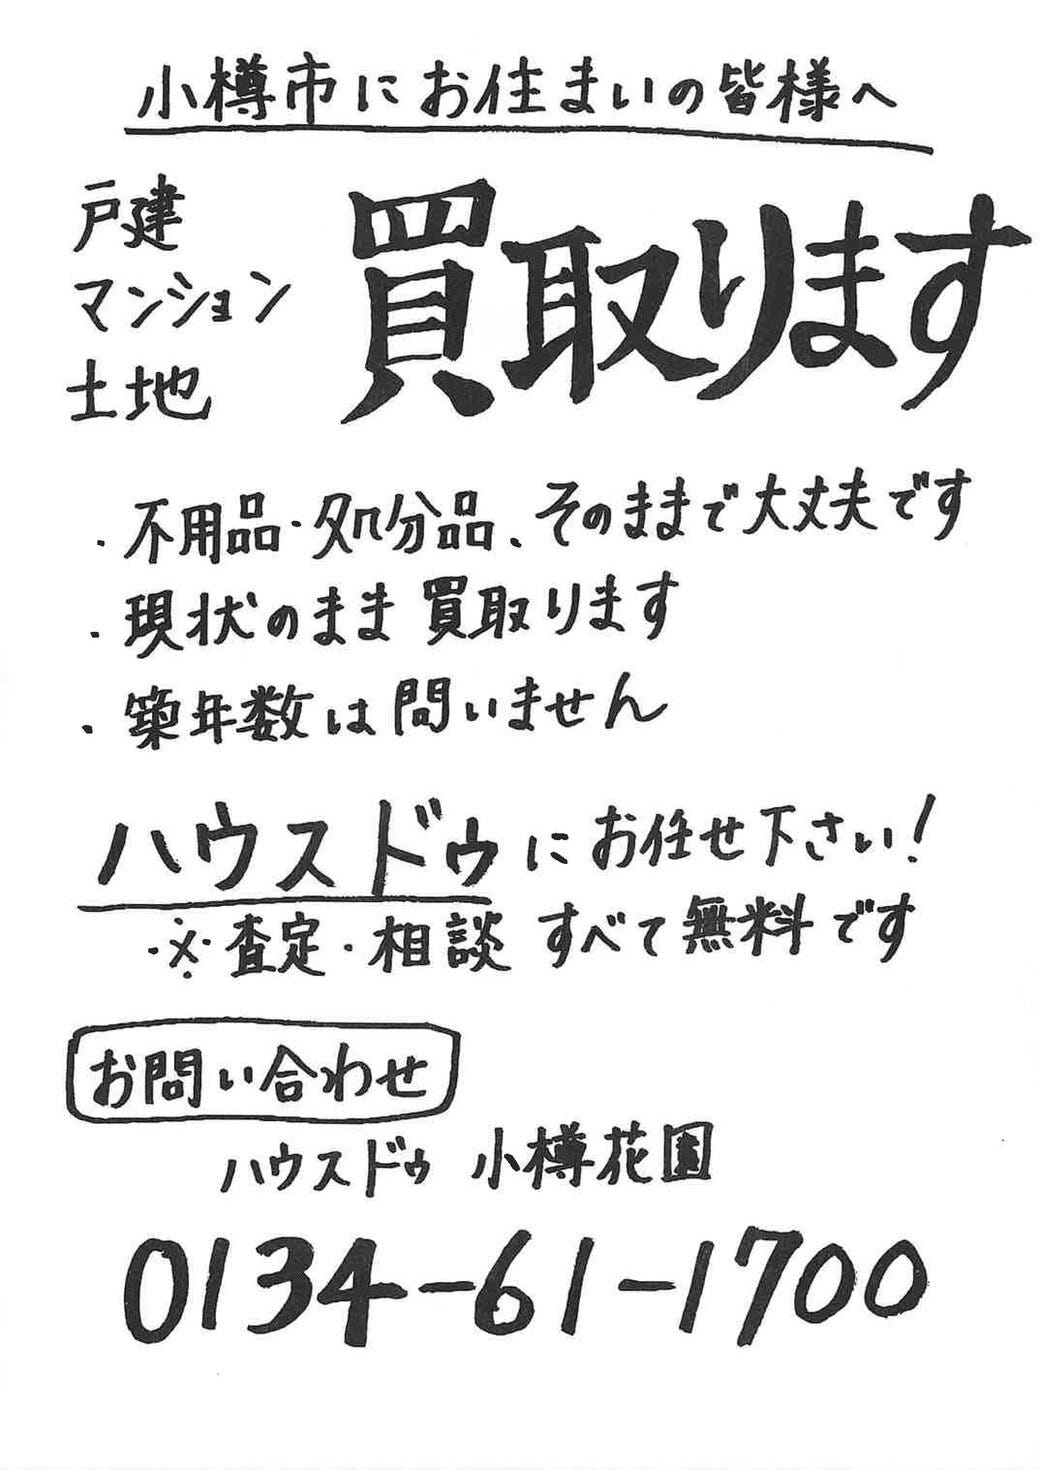 小樽市にお住まいの皆様へ
戸建
マンション
土地
買取ります
・不用品・処分品、そのままで大丈夫です
・現状のまま買取ります
・築年数は問いません
ハウスドゥにお任せ下さい!
※査定・相談 すべて無料です
お問い合わせ
ハウスドゥ 小樽花園
0134-61-1700